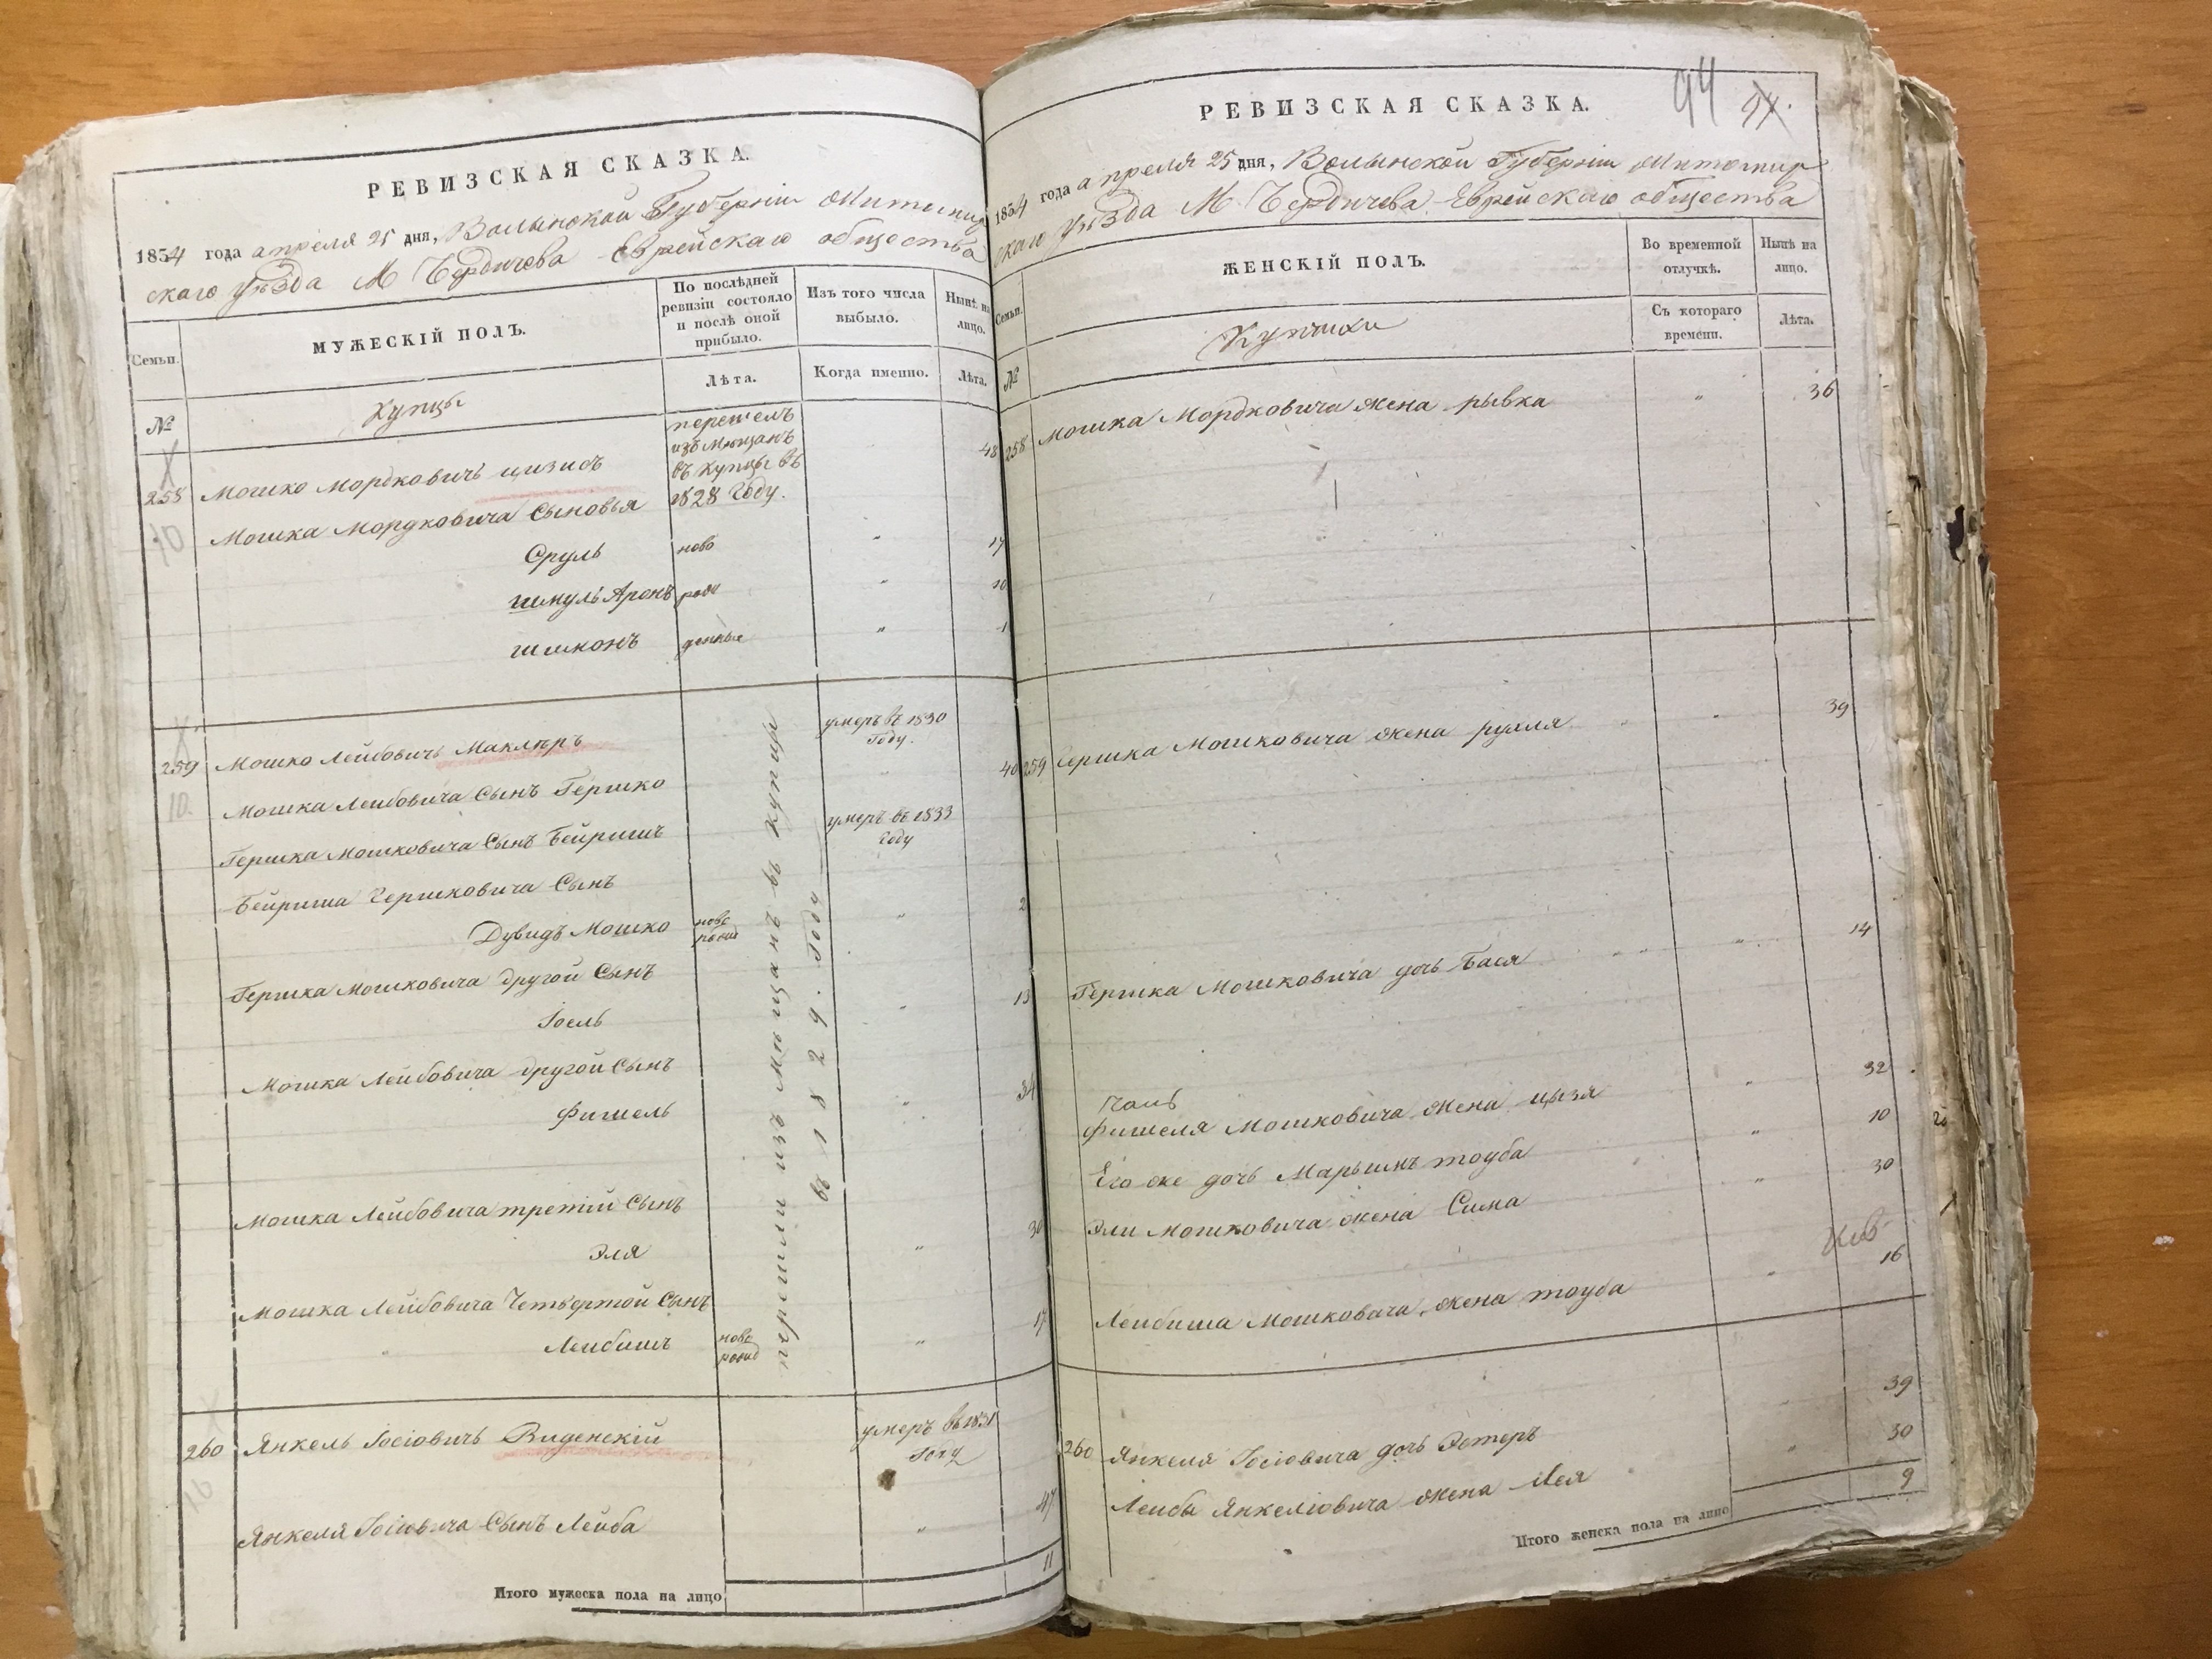 РЕВИЗСКАЯ СКАЗКА.
1834 года апреля 25 дня, Волынской Губерніи Житомир
скаго уѣзда М Бердичева Еврейскаго общества
Семьи.
МУЖЕСКІЙ ПОЛЪ.
По послѣдней ревизіи состояло и послѣ оной прибыло.
Изъ того числа выбыло.
Нынѣ на лицо.
№
Купцы
Лѣта.
Когда именно.
Лѣта.
258 Мошко Мордковичъ Цизисъ перешелъ изъ Мѣщанъ въ купцы въ 1828 Году. 48
10
Мошка Мордковича Сыновья
Сруль ново " 17
Шмуль Аронъ рож " 10
Шимконъ денные " 1
259 Мошко Лейбовичъ Маклеръ умеръ въ 1830 Году.
10.
Мошка Лейбовича Сынъ Гершко 40
Гершка Мошковича Сынъ Бейришъ умеръ въ 1833 Году
Бейриша Гершковича Сынъ
Дувидъ Мошко ново рожд " 2
Гершка Мошковича другой Сынъ
Іоель " 13
Мошка Лейбовича другой Сынъ
Фишель " 34
Мошка Лейбовича третій Сынъ
Эля " 30
Мошка Лейбовича Четвертой Сынъ
Лейбишъ ново рожд " 17
перешли изъ Мѣщанъ въ купцы
въ 1829. Году
260 Янкель Іосіовичъ Виденскій умеръ въ 1831 Году
16
Янкеля Іосіовича Сынъ Лейба " 47
Итого мужеска пола на лицо 11
РЕВИЗСКАЯ СКАЗКА.
94 94.
1834 года апреля 25 дня, Волынской Губерніи Житомир
скаго уѣзда М Бердичева Еврейскаго общества
Семьи.
ЖЕНСКІЙ ПОЛЪ.
Во временной отлучкѣ.
Нынѣ на лицо.
№
Купчихи
Съ котораго времени.
Лѣта.
258 Мошка Мордковича жена рывка " 36
259 Гершка Мошковича жена рухля " 39
Гершка Мошковича дочь Бася " 14
Фишеля Мошковича жена цызя " 32
Его же дочь Марьимъ тоуба " 10
Эли Мошковича жена Сима " 30
Лейбиша Мошковича жена тоуба " 16
260 Янкеля Іосіовича дочь Эстеръ 39
Лейбы Янкеліовича жена Лея " 30
Итого женска пола на лицо 9